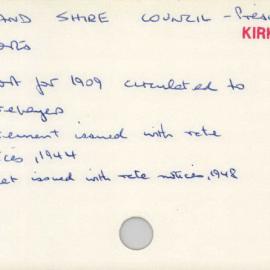 AND SHIRE COUNCIL - Presi
KIRK
orts
ort for 1909 circulated to
tepayers
tement issued with rate
ices, 1944
et issued with rate notices, 1948